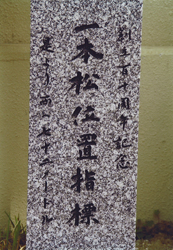 創立百十周年記念
一本松位置指標
是より南へ七十二メートル